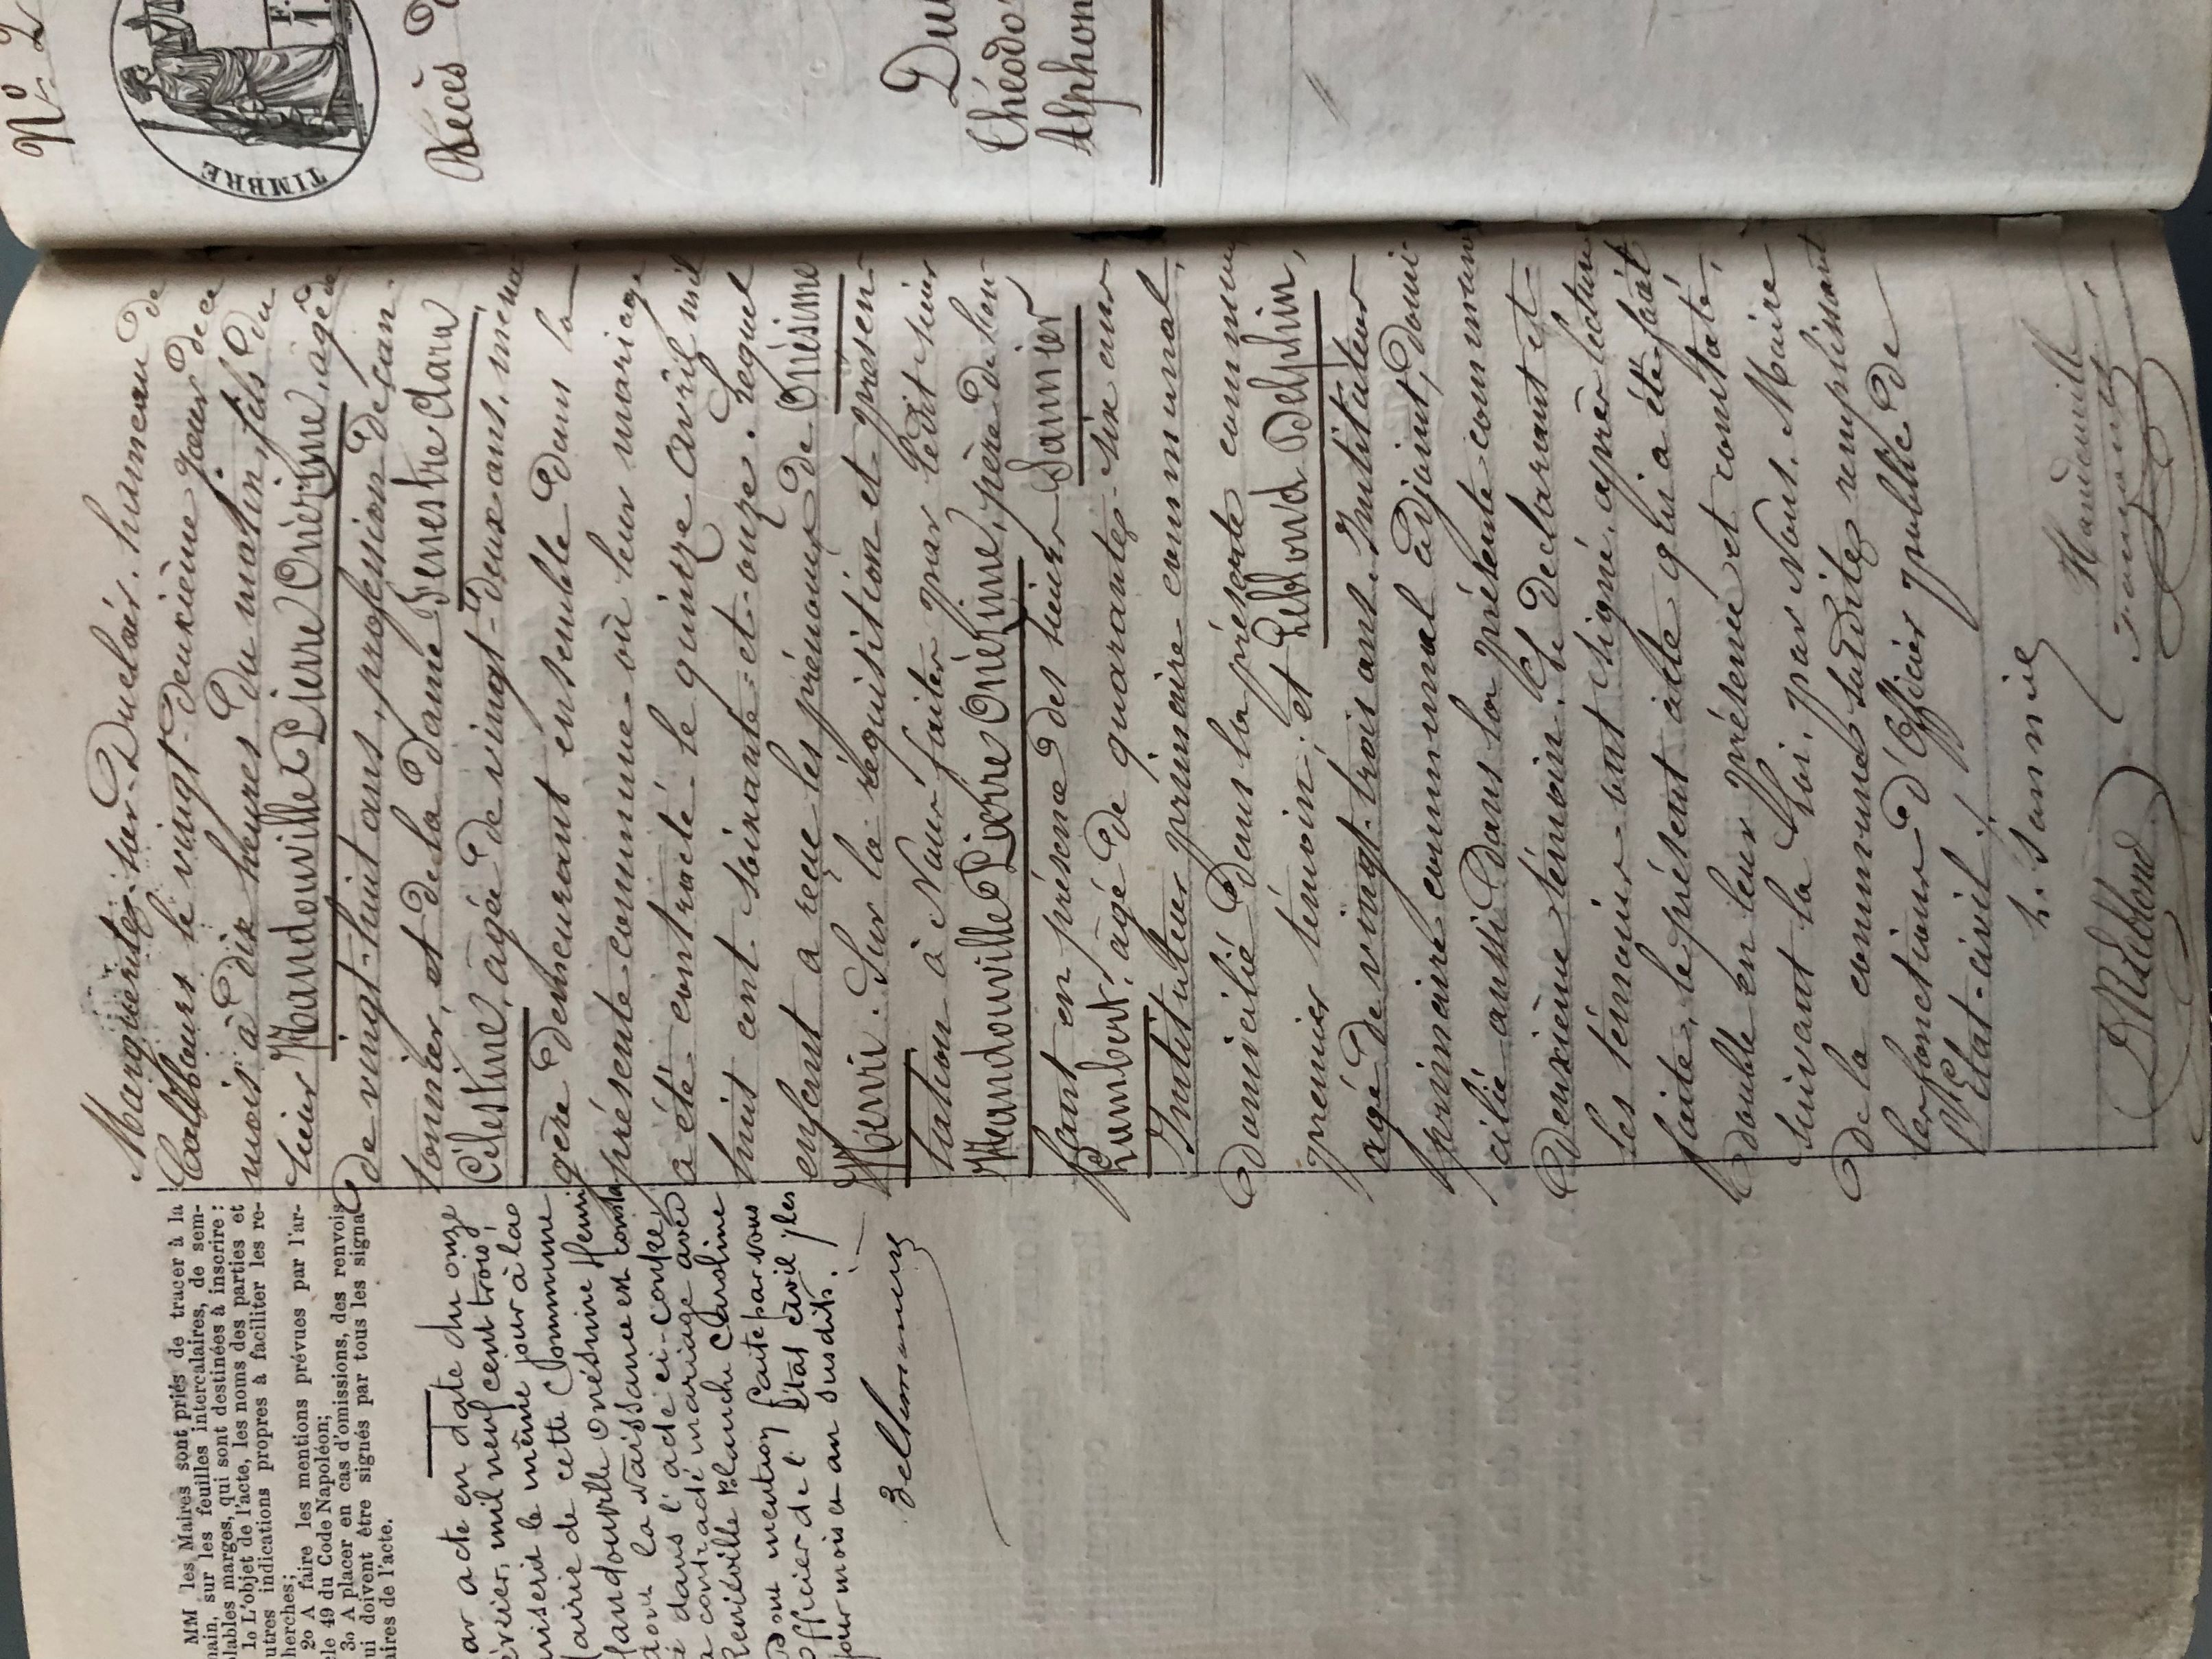 MM les Maires sont priés de tracer à la
main, sur les feuilles intercalaires, de sem-
blables marges, qui sont destinées à inscrire :
1o L'objet de l'acte, les noms des parties et
autres indications propres à faciliter les re-
herches;
2o A faire les mentions prévues par l'ar-
cle 49 du Code Napoléon;
3o A placer en cas d'omissions, des renvois
ui doivent être signés par tous les signa-
aires de l'acte.
ar acte en date du onze
évrier, mil neuf cent trois,
nscrit le même jour à la
airie de cette Commune
andouville Onésime Henri
dont la Naissance est consta
é dans l'acte ci-contre,
a contracté mariage avec
Renéville Blanche Caroline
Dont mention faite par nous
Officier de l'Etat civil, les
jour mois et an susdits.
Marguerite-sur-Duclair, hameau de
le vingt-deuxième jour de ce
mois à dix heures du matin, fils du
sieur Handouville Pierre Onézime, âgé
de vingt-huit ans, profession de jour-
nalier, et de la dame Fenestre Clara
Célestine, agée de vingt-deux ans, mena
gère demeurant ensemble dans la
présente commune où leur mariage
a été contracté le quinze avril mil
huit cent soixante-et-onze. Lequel
enfant a reçu les prénoms de Onésime
Henri. Sur la réquisition et présen-
tation à Nous faites par ledit sieur
Handouville Pierre Onézime, père de l'en-
fant en présence des sieurs Sannier
Lambert, âgé de quarante-six ans
Instituteur primaire communal,
domicilié dans la présente commune
premier témoin; et Leblond Delphin,
agé de vingt-trois ans Instituteur
primaire communal adjoint, domi-
cilié aussi dans la présente commune
deuxième témoin. Le déclarant et
les témoins ont signé, après lecture
faite, le présent acte qui a été fait
double en leur présence et constaté,
suivant la Loi, par Nous, Maire
de la commune susdite remplissant
les fonctions d'Officier public de
l'Etat-civil./.
L. Sannier
Handouville
D Leblond
No 2
TIMBRE
Décès
Théodo
Alphon